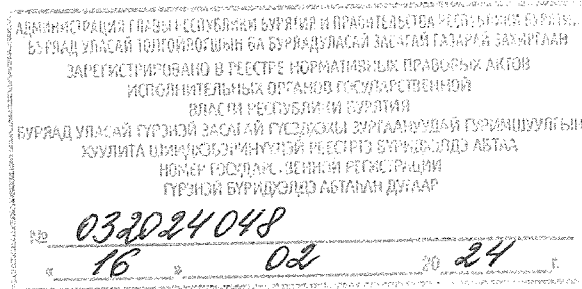 АДМИНИСТРАЦИЯ ГЛАВЫ РЕСПУБЛИКИ БУРЯТИЯ И ПРАВИТЕЛЬСТВА РЕСПУБЛИКИ БУРЯТИЯ
БУРЯАД УЛАСАЙ ТОЛГОЙЛОГШЫН БА БУРЯАД УЛАСАЙ ЗАСАГАЙ ГАЗАРАЙ ЗАХИРГААН
ЗАРЕГИСТРИРОВАНО В РЕЕСТРЕ НОРМАТИВНЫХ ПРАВОВЫХ АКТОВ
ИСПОЛНИТЕЛЬНЫХ ОРГАНОВ ГОСУДАРСТВЕННОЙ
ВЛАСТИ РЕСПУБЛИКИ БУРЯТИЯ
БУРЯАД УЛАСАЙ ГҮРЭНЭЙ ЗАСАГАЙ ГҮЙСЭДХЭХЫ ЗУРГААНУУДАЙ ГУРИМШУУЛГЫН
ХУУЛИТА РЕЕСТРТЭ БҮРИДХЭЛДЭ АБТАА
НОМЕР ГОСУДАРСТВЕННОЙ РЕГИСТРАЦИИ
ГҮРЭНЭЙ БҮРИДХЭЛДЭ АБТАҺАН ДУГААР
№ 032024048
« 16 » 02 20 24 г.